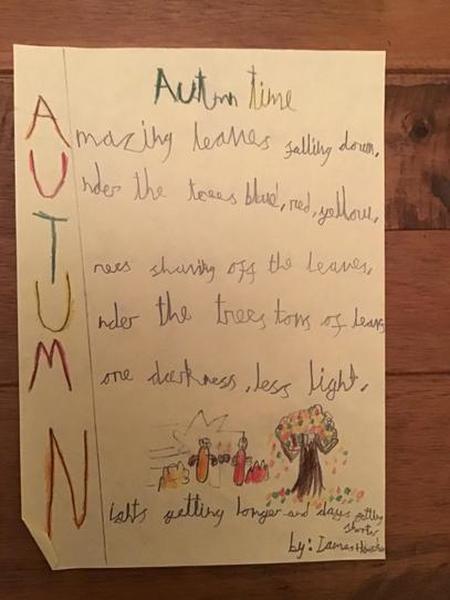 Autmn time
Amazing leaves falling down,
Under the trees blue, red, yellow,
Trees shaving off the leaves,
Under the trees tons of leavs
More darkness, less light,
Nights getting longer and days getting shorter
by: James